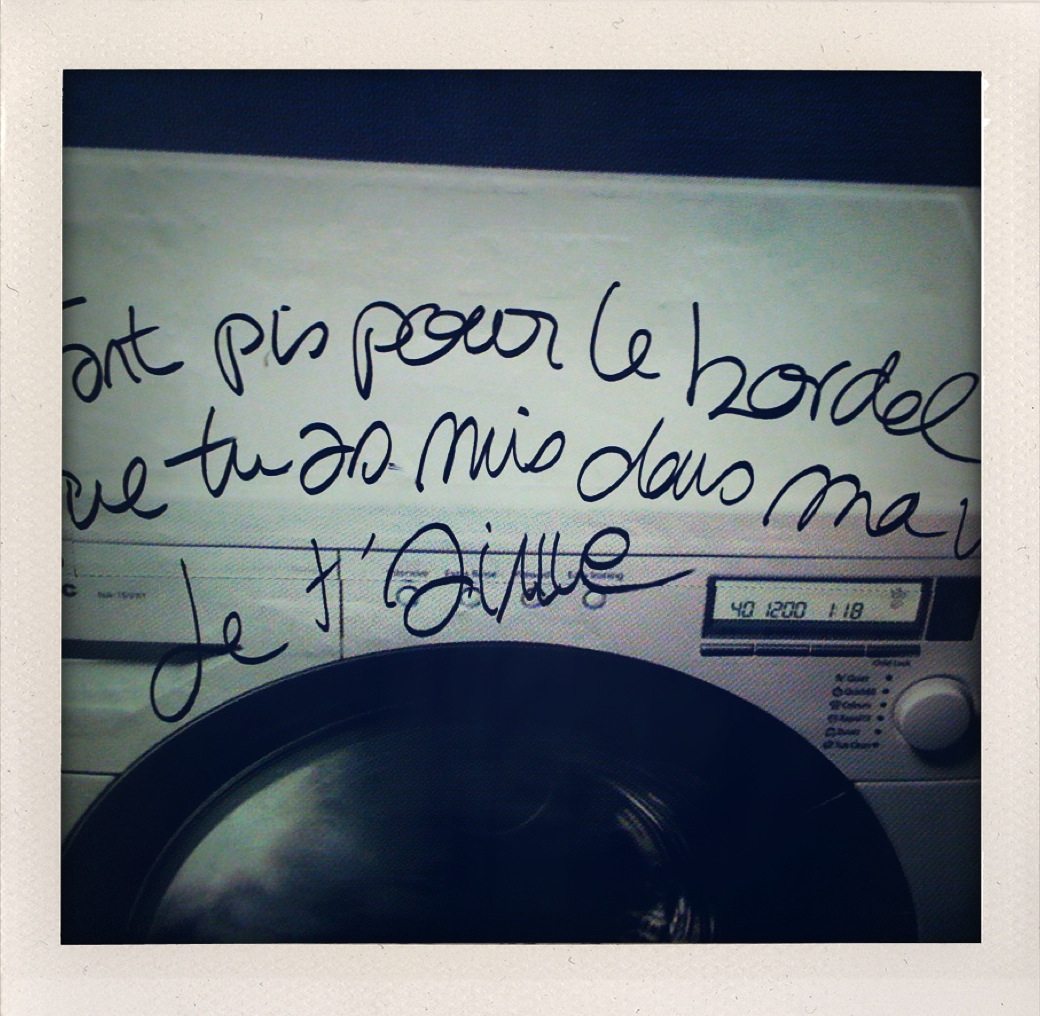 ant pis pour le bordel
ue tu as mis dans ma v
Je t'aime
40 1200 1:18
Child Lock
Quiet
Colours